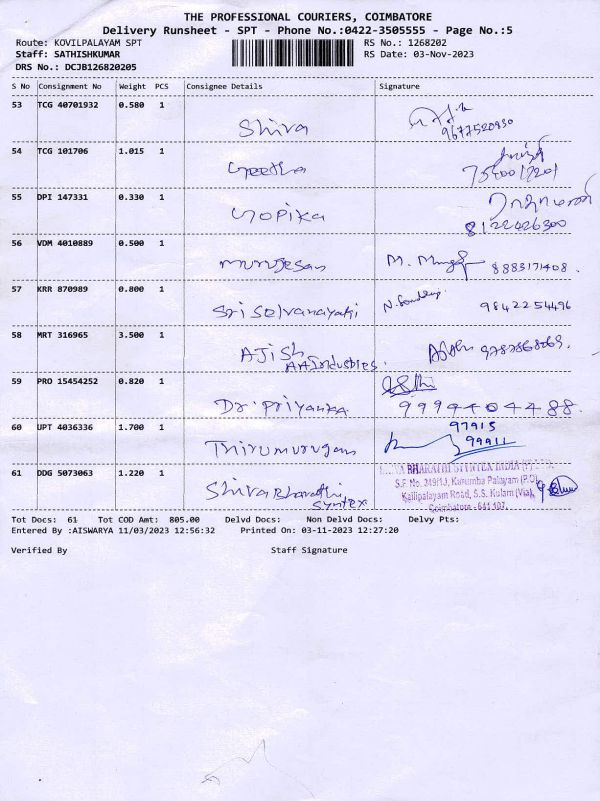 THE PROFESSIONAL COURIERS, COIMBATORE
Delivery Runsheet - SPT - Phone No.:0422-3505555 - Page No.:5
Route: KOVILPALAYAM SPT RS No.: 1268202
Staff: SATHISHKUMAR RS Date: 03-Nov-2023
DRS No.: DCJB126820205
S No Consignment No Weight PCS Consignee Details Signature
53 TCG 40701932 0.580 1 Shiva 9677520930
54 TCG 101706 1.015 1 Geetha
55 DPI 147331 0.330 1 Gopika 8122426300
56 VDM 4010889 0.500 1 Murugesan M. 8883171408.
57 KRR 870989 0.800 1 Sri Selvanayaki 9842254496
58 MRT 316965 3.500 1 AJish
AA Industries.
59 PRO 15454252 0.820 1 Dr. Priyanka 9994404488.
60 UPT 4036336 1.700 1 Thirumurugan 97915
99911
61 DDG 5073063 1.220 1 Shiva Bharathi
Syntex
BHARATHI SYNTEX INDIA (P) LTD.
S.F. No. 349/1J, Kurumba Palayam (P.O),
Kailipalayam Road, S.S. Kulam (Via),
Coimbatore - 641 107.
Tot Docs: 61 Tot COD Amt: 805.00 Delvd Docs: Non Delvd Docs: Delvy Pts:
Entered By :AISWARYA 11/03/2023 12:56:32 Printed On: 03-11-2023 12:27:20
Verified By Staff Signature